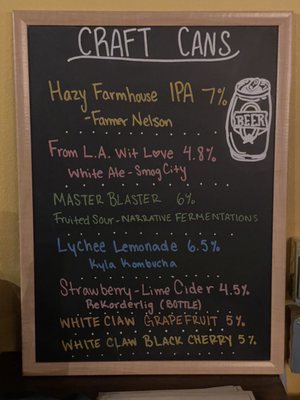 CRAFT CANS
Hazy Farmhouse IPA 7%
-Farmer Nelson
BEER
From L.A. Wit Love 4.8%
White Ale - Smog City
MASTER BLASTER 6%
Fruited Sour - NARRATIVE FERMENTATIONS
Lychee Lemonade 6.5%
Kyla Kombucha
Strawberry-Lime Cider 4.5%
Rekorderlig (BOTTLE)
WHITE CLAW GRAPEFRUIT 5%
WHITE CLAW BLACK CHERRY 5%